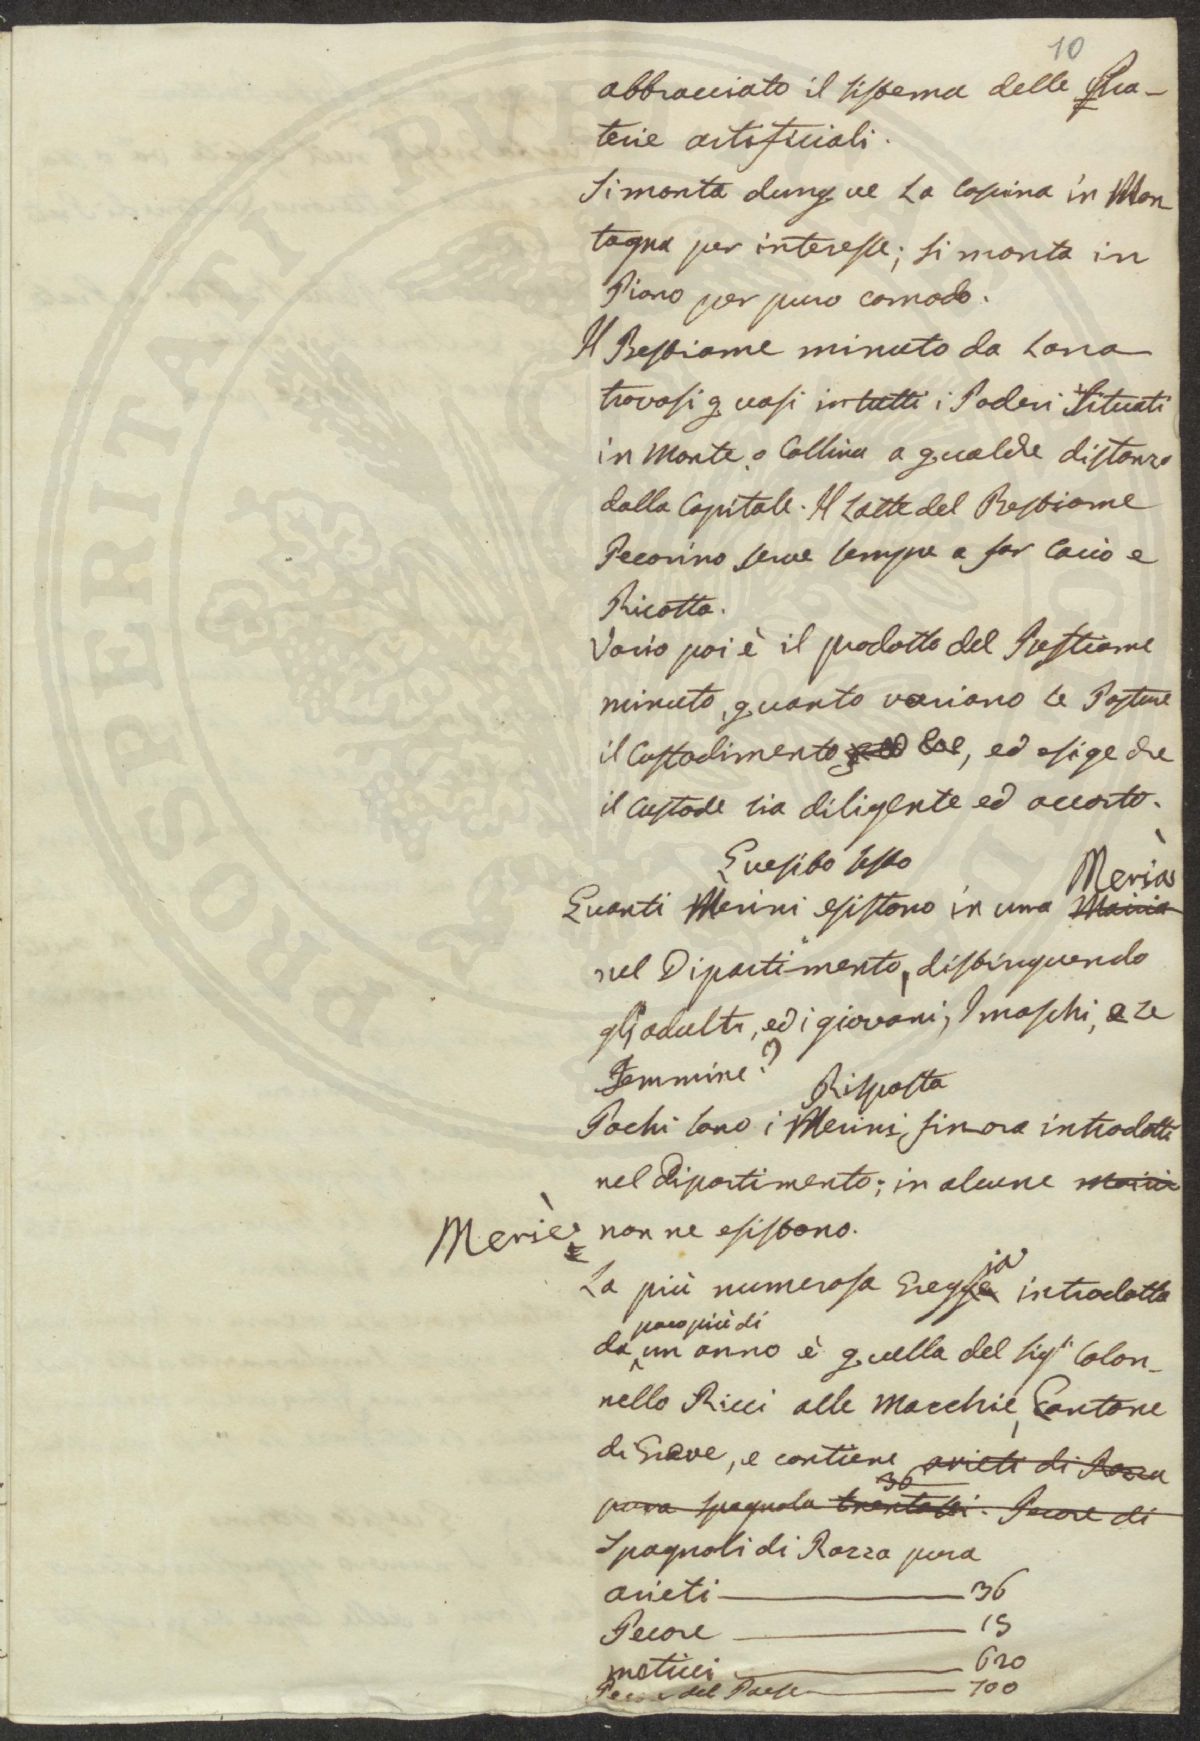 10
abbracciato il sistema delle Pra-
terie artificiali.
Si monta dunque La Cascina in Mon
tagna per interesse; si monta in
Piano per puro comodo.
Il Bestiame minuto da Lana
trovasi quasi in tutti i Poderi Situati
in Monte, o Collina a qualche distanza
dalla Capitale. Il Latte del Bestiame
Pecorino serve sempre a far Cacio e
Ricotta.
Vario poi è il prodotto del Bestiame
minuto, quanto variano le Pasture
il Custodimento, ed esige che
il Custode sia diligente ed accorto.
Quesito sesto
Meria
Quanti Merini esistono in una Mairia
nel Dipartimento, distinguendo
gli adulti, ed i giovani, I maschi, e Le
Femmine?
Risposta
Pochi sono i Merini finora introdotti
nel Dipartimento; in alcune Mairie
Meriè non ne esistono.
La più numerosa Greggia introdotta
poco più di
da un anno è quella del Sig. Colon-
nello Ricci alle Macchie, Cantone
di Greve, e contiene arieti di Razza
36
pura spagnola trentasei. Pecore di
Spagnoli di Razza pura
arieti 36
Pecore 15
meticci 620
Pecore del Paese 100